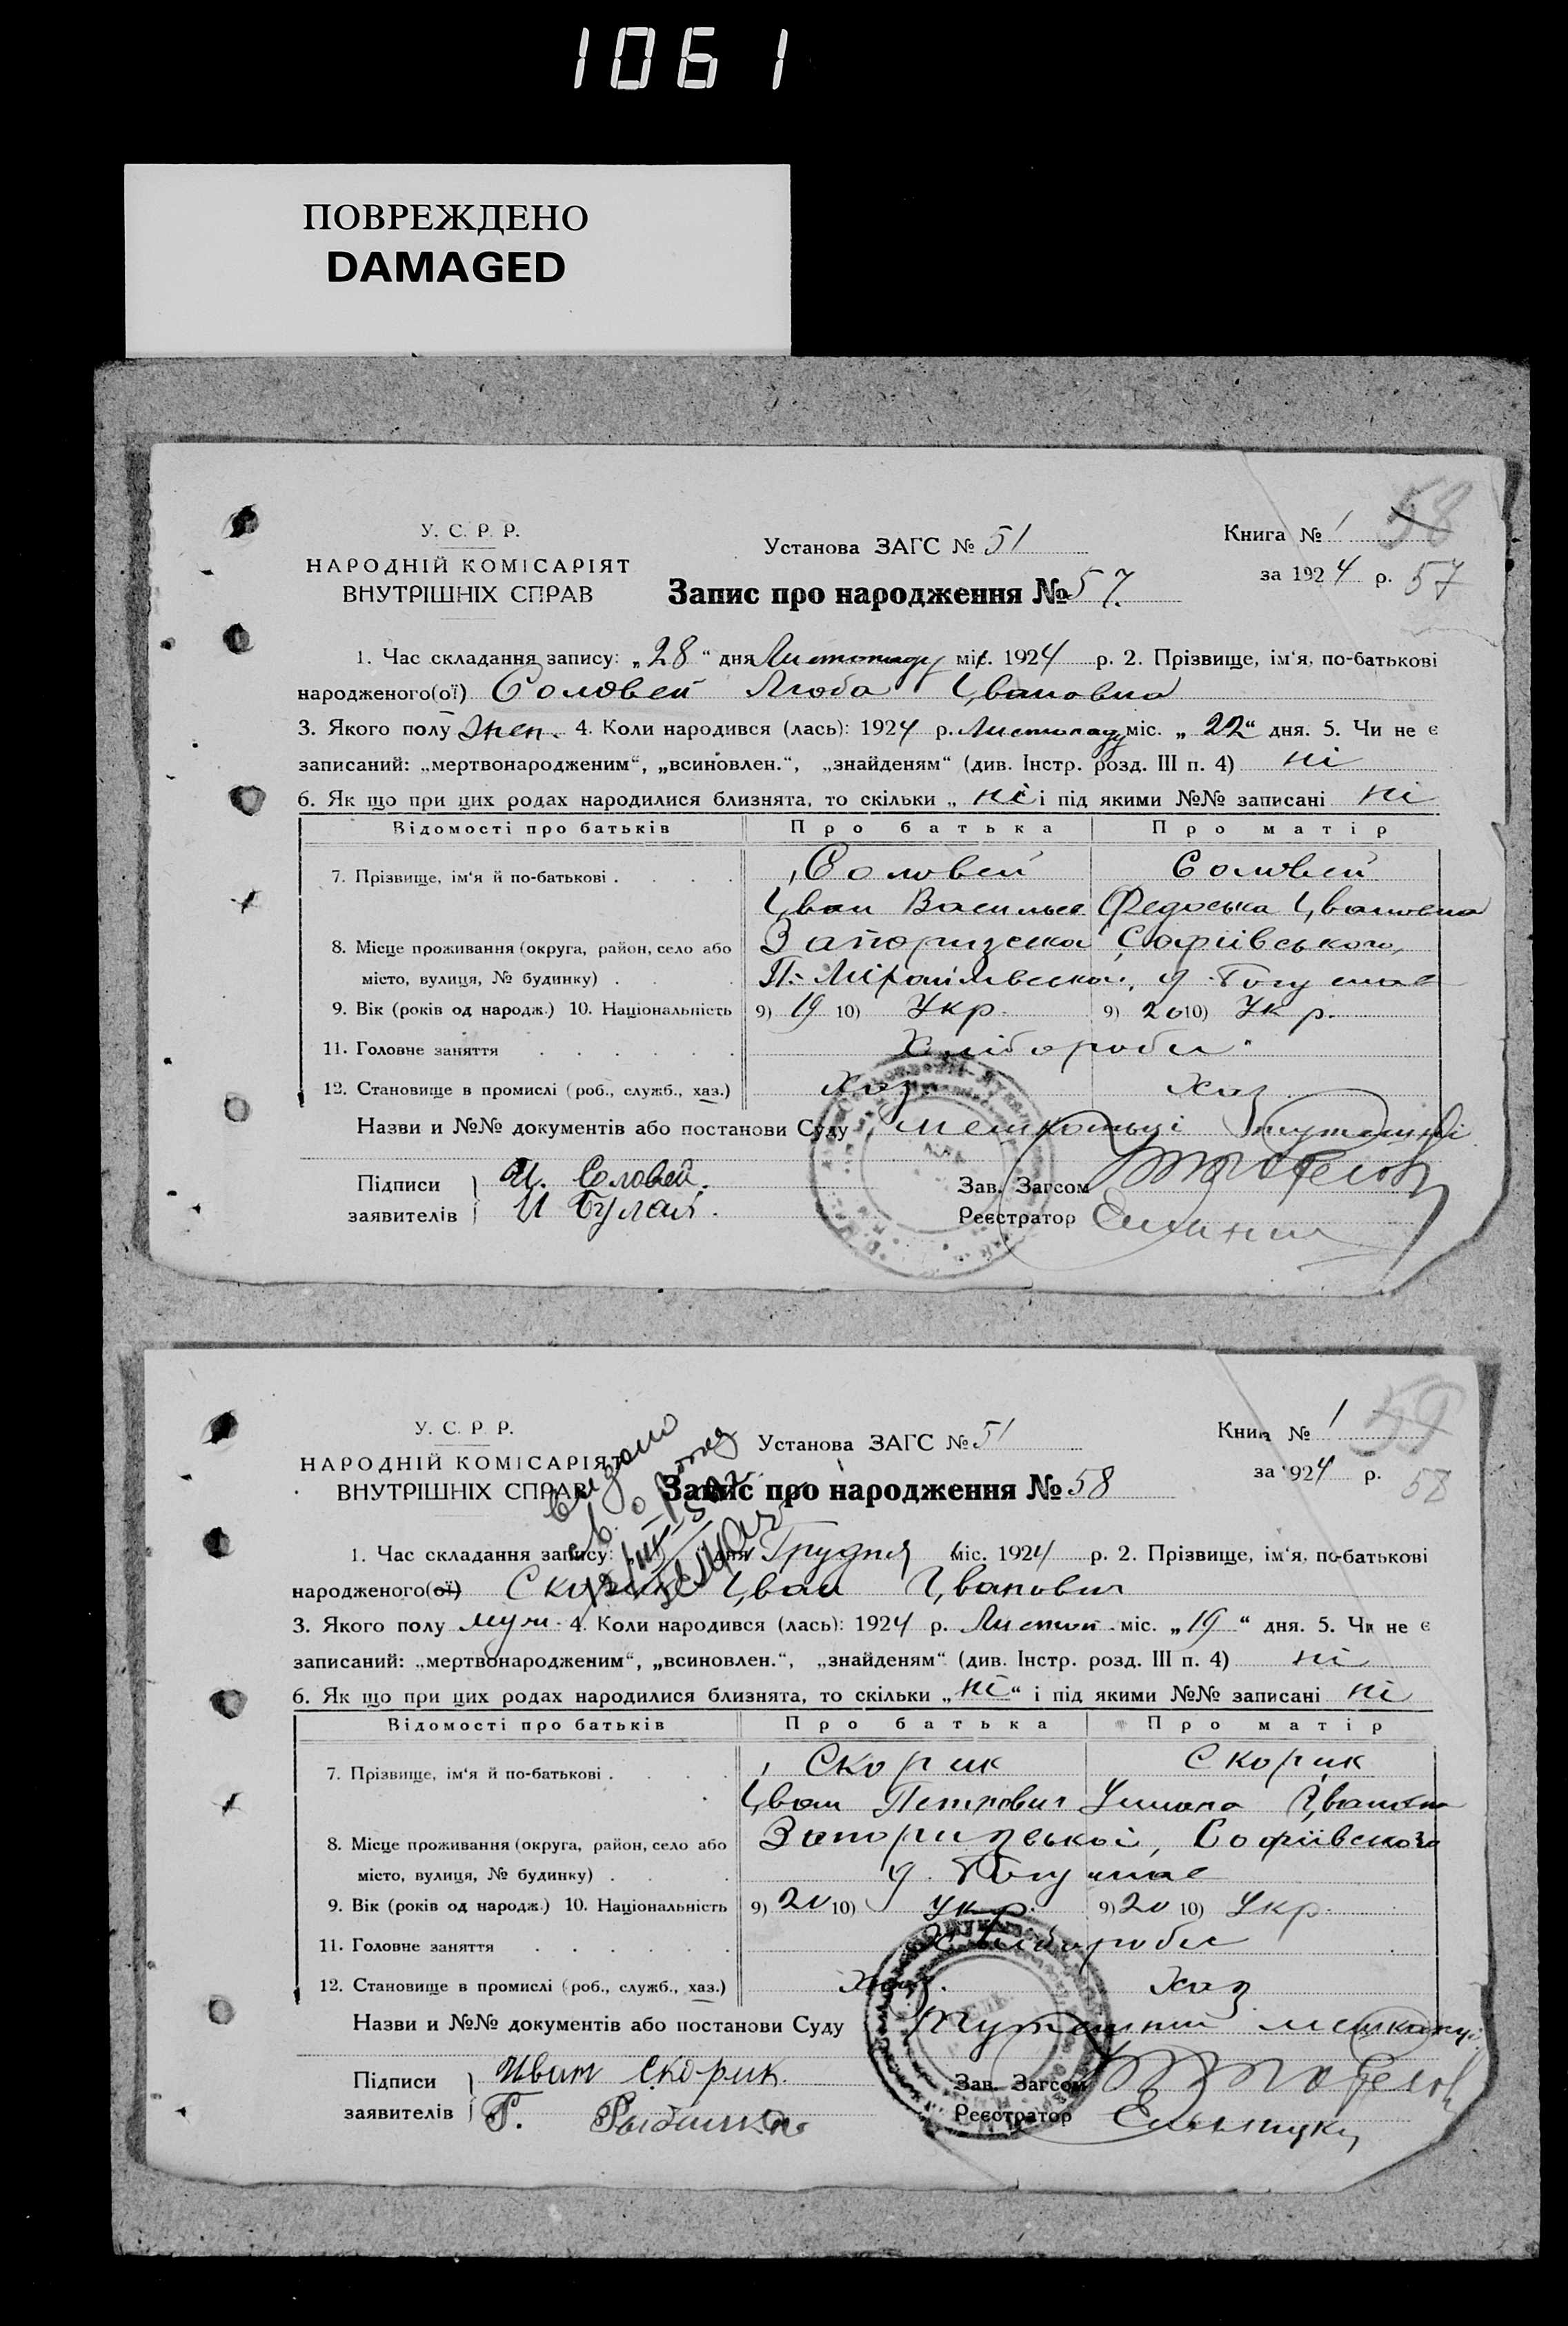 1061
ПОВРЕЖДЕНО
DAMAGED
У. С. Р. Р.
НАРОДНІЙ КОМІСАРІЯТ
ВНУТРІШНІХ СПРАВ
Установа ЗАГС № 51
Книга № 1 58
за 1924 р. 57
Запис про народження № 57.
1. Час складання запису: „28“ дня Листопаду міс. 1924 р. 2. Прізвище, ім‘я, по-батькові
народженого(ої) Соловей Люба Івановна
3. Якого полу жен. 4. Коли народився (лась): 1924 р. Листопаду міс. „22“ дня. 5. Чи не є
записаний: „мертвонародженим“, „всиновлен.“, „знайденям“ (див. Інстр. розд. III п. 4) ні
6. Як що при цих родах народилися близнята, то скільки „ні і під якими №№ записані ні
Відомості про батьків Про батька Про матір
7. Прізвище, ім‘я й по-батькові . . . . Соловей Соловей
Іван Васильев Федоська Івановна
8. Місце проживання (округа, район, село або Запоризской Софіівського,
місто, вулиця, № будинку) . . .
9. Вік (років од народж.) 10. Національність 9) 19 10) Укр. 9) 20 10) Укр.
11. Головне заняття . . . . . . Хлібороби
12. Становище в промислі (роб., служб., хаз.) Хаз. Хаз.
Назви и №№ документів або постанови Суду мешканьці
Підписи И. Соловей.
заявителів И Булат.
Зав. Загсом
Реєстратор
У. С. Р. Р.
НАРОДНІЙ КОМІСАРІЯТ
ВНУТРІШНІХ СПРАВ
Установа ЗАГС № 51
Книга № 1 59
за 1924 р. 58
Запис про народження № 58
1. Час складання запису: дня Грудня міс. 1924 р. 2. Прізвище, ім‘я, по-батькові
народженого(ої) Скорик Іван Іванович
3. Якого полу муж. 4. Коли народився (лась): 1924 р. Листоп. міс. „19“ дня. 5. Чи не є
записаний: „мертвонародженим“, „всиновлен.“, „знайденям“ (див. Інстр. розд. III п. 4) ні
6. Як що при цих родах народилися близнята, то скільки „ні“ і під якими №№ записані ні
Відомості про батьків Про батька Про матір
7. Прізвище, ім‘я й по-батькові . . . . Скорик Скорик
Іван Петрович Івановна
8. Місце проживання (округа, район, село або Запоризської, Софіівского
місто, вулиця, № будинку) . . .
9. Вік (років од народж.) 10. Національність 9) 20 10) Укр. 9) 20 10) Укр.
11. Головне заняття . . . . . . Хлібороби
12. Становище в промислі (роб., служб., хаз.) Хаз. Хаз
Назви и №№ документів або постанови Суду
Підписи Иван Скорик.
заявителів Г.
Зав. Загсом
Реєстратор